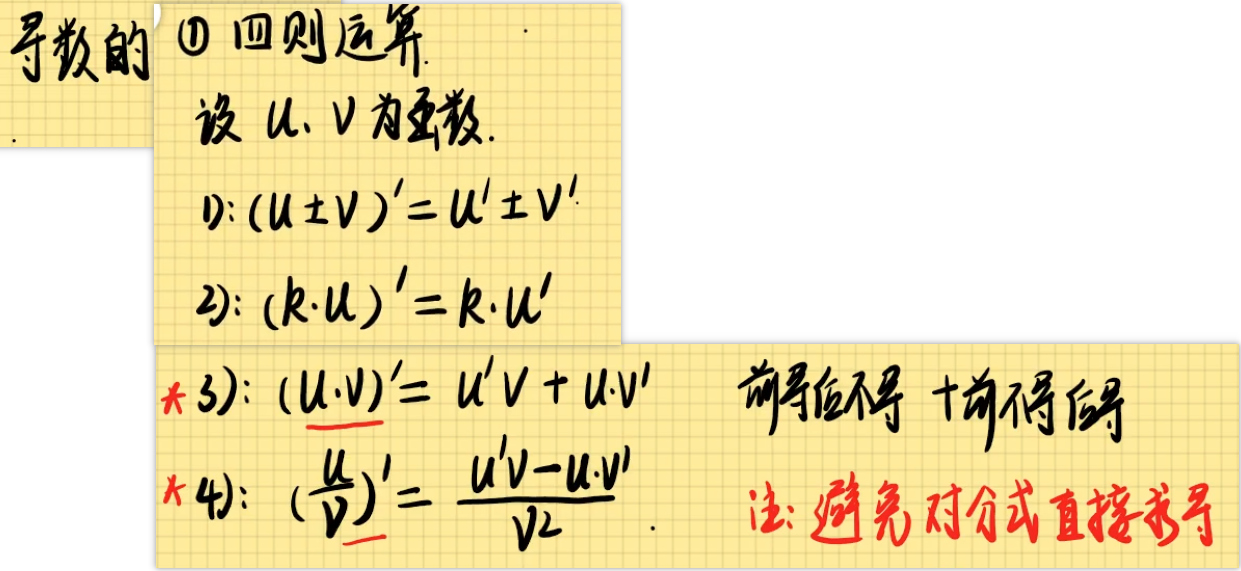 导数的
① 四则运算.
设 u、v 为函数.
1): (u±v)′=u′±v′.
2): (k·u)′=k·u′
* 3): (u·v)′= u′v+u·v′ 前导后不导 +前不导后导
* 4): (\frac{u}{v})′= \frac{u′v-u·v′}{v²}.
注: 避免对分式直接求导